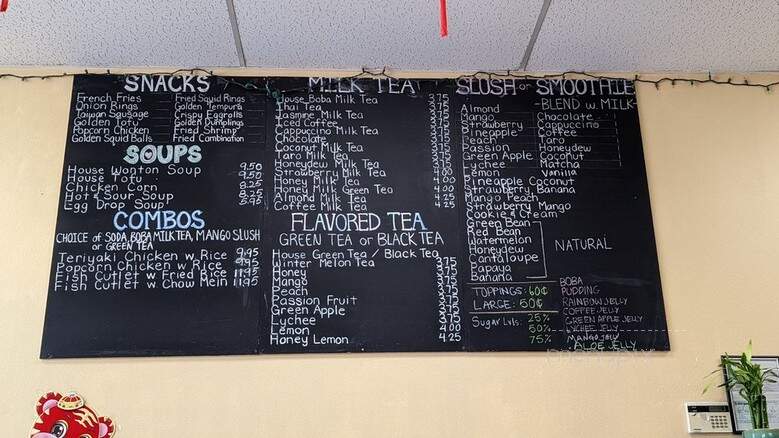 SNACKS
French Fries
Onion Rings
Taiwan Sausage
Golden Tofu
Popcorn Chicken
Golden Squid Balls
Fried Squid Rings
Golden Tempura
Crispy Eggrolls
Golden Dumplings
Fried Shrimp
Fried Combination
SOUPS
House Wonton Soup 9.50
House Tofu 9.50
Chicken Corn 8.25
Hot & Sour Soup 8.25
Egg Drop Soup
COMBOS
CHOICE of SODA, BOBA MILK TEA, MANGO SLUSH
or GREEN TEA
Teriyaki Chicken w Rice 9.95
Popcorn Chicken w Rice 9.95
Fish Cutlet w Fried Rice 11.95
Fish Cutlet w Chow Mein 11.95
MILK TEA
House Boba Milk Tea 3.75
Thai Tea 3.75
Jasmine Milk Tea 3.75
Iced Coffee 3.75
Cappuccino Milk Tea 3.75
Chocolate 3.75
Coconut Milk Tea 3.75
Taro Milk Tea 3.75
Honeydew Milk Tea 3.75
Strawberry Milk Tea 4.00
Honey Milk Tea 4.00
Honey Milk Green Tea 4.00
Almond Milk Tea 4.25
Coffee Milk Tea 4.25
FLAVORED TEA
GREEN TEA or BLACK TEA
House Green Tea / Black Tea
Winter Melon Tea 3.75
Honey 3.75
Mango 3.75
Peach 3.75
Passion Fruit 3.75
Green Apple 3.75
Lychee 3.75
Lemon 4.00
Honey Lemon 4.25
SLUSH or SMOOTHIE
-BLEND w. MILK-
Almond
Mango
Strawberry
Pineapple
Peach
Passion
Green Apple
Lychee
Lemon
Chocolate
Cappuccino
Coffee
Taro
Honeydew
Coconut
Matcha
Vanilla
Pineapple Coconut
Strawberry Banana
Mango Peach
Strawberry Mango
Cookie & Cream
Green Bean
Red Bean
Watermelon
Honeydew
Cantaloupe
Papaya
Banana
NATURAL
TOPPINGS: 60¢
LARGE: 50¢
Sugar Lvls: 25%
50%
75%
BOBA
PUDDING
RAINBOW JELLY
COFFEE JELLY
GREEN APPLE JELLY
LYCHEE JELLY
MANGO JELLY
ALOE JELLY